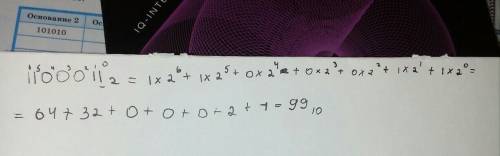 IQ-INTE
Основание 2
Ос
101010
6 5 4 3 2 1 0
1100011₂ = 1×2⁶ + 1×2⁵ + 0×2⁴ + 0×2³ + 0×2² + 1×2¹ + 1×2⁰ =
= 64 + 32 + 0 + 0 + 0 + 2 + 1 = 99₁₀